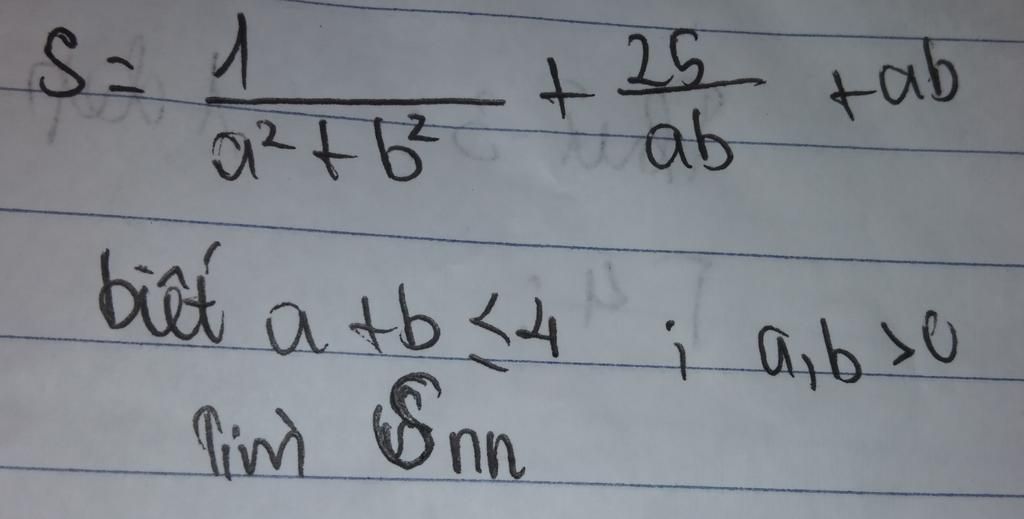 S = \frac{1}{a^2 + b^2} + \frac{25}{ab} + ab
biết a + b ≤ 4 ; a, b > 0
Tìm Snn